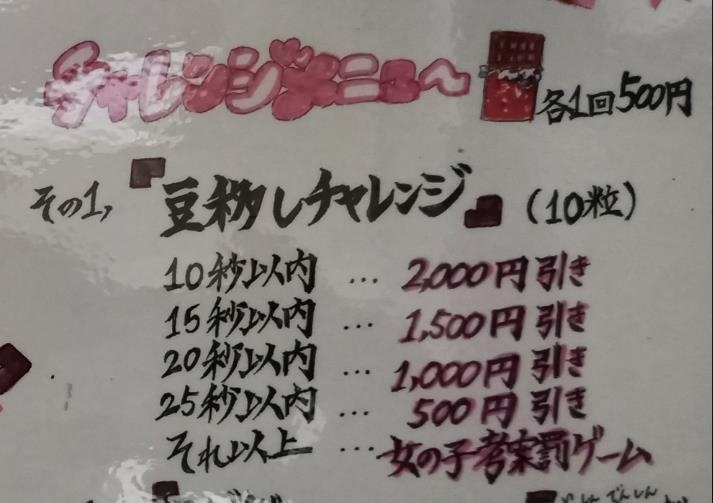 チャレンジメニュ〜
各1回500円
その1, 『豆移しチャレンジ』 (10粒)
10秒以内 … 2,000円引き
15秒以内 … 1,500円引き
20秒以内 … 1,000円引き
25秒以内 … 500円引き
それ以上 … 女の子考案罰ゲーム